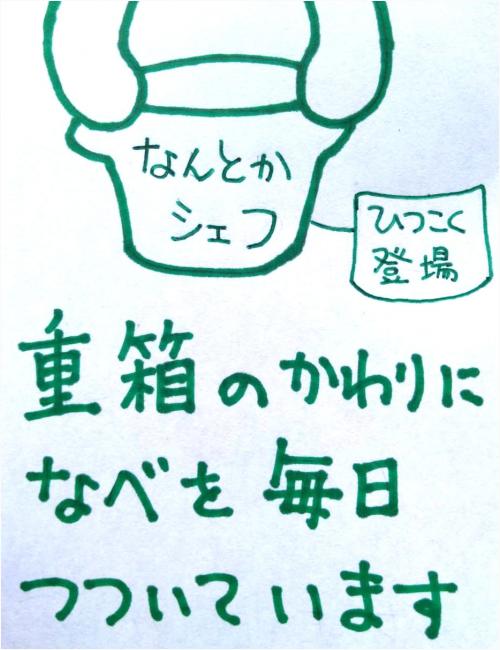 なんとか
シェフ
ひつこく
登場
重箱のかわりに
なべを毎日
つついています